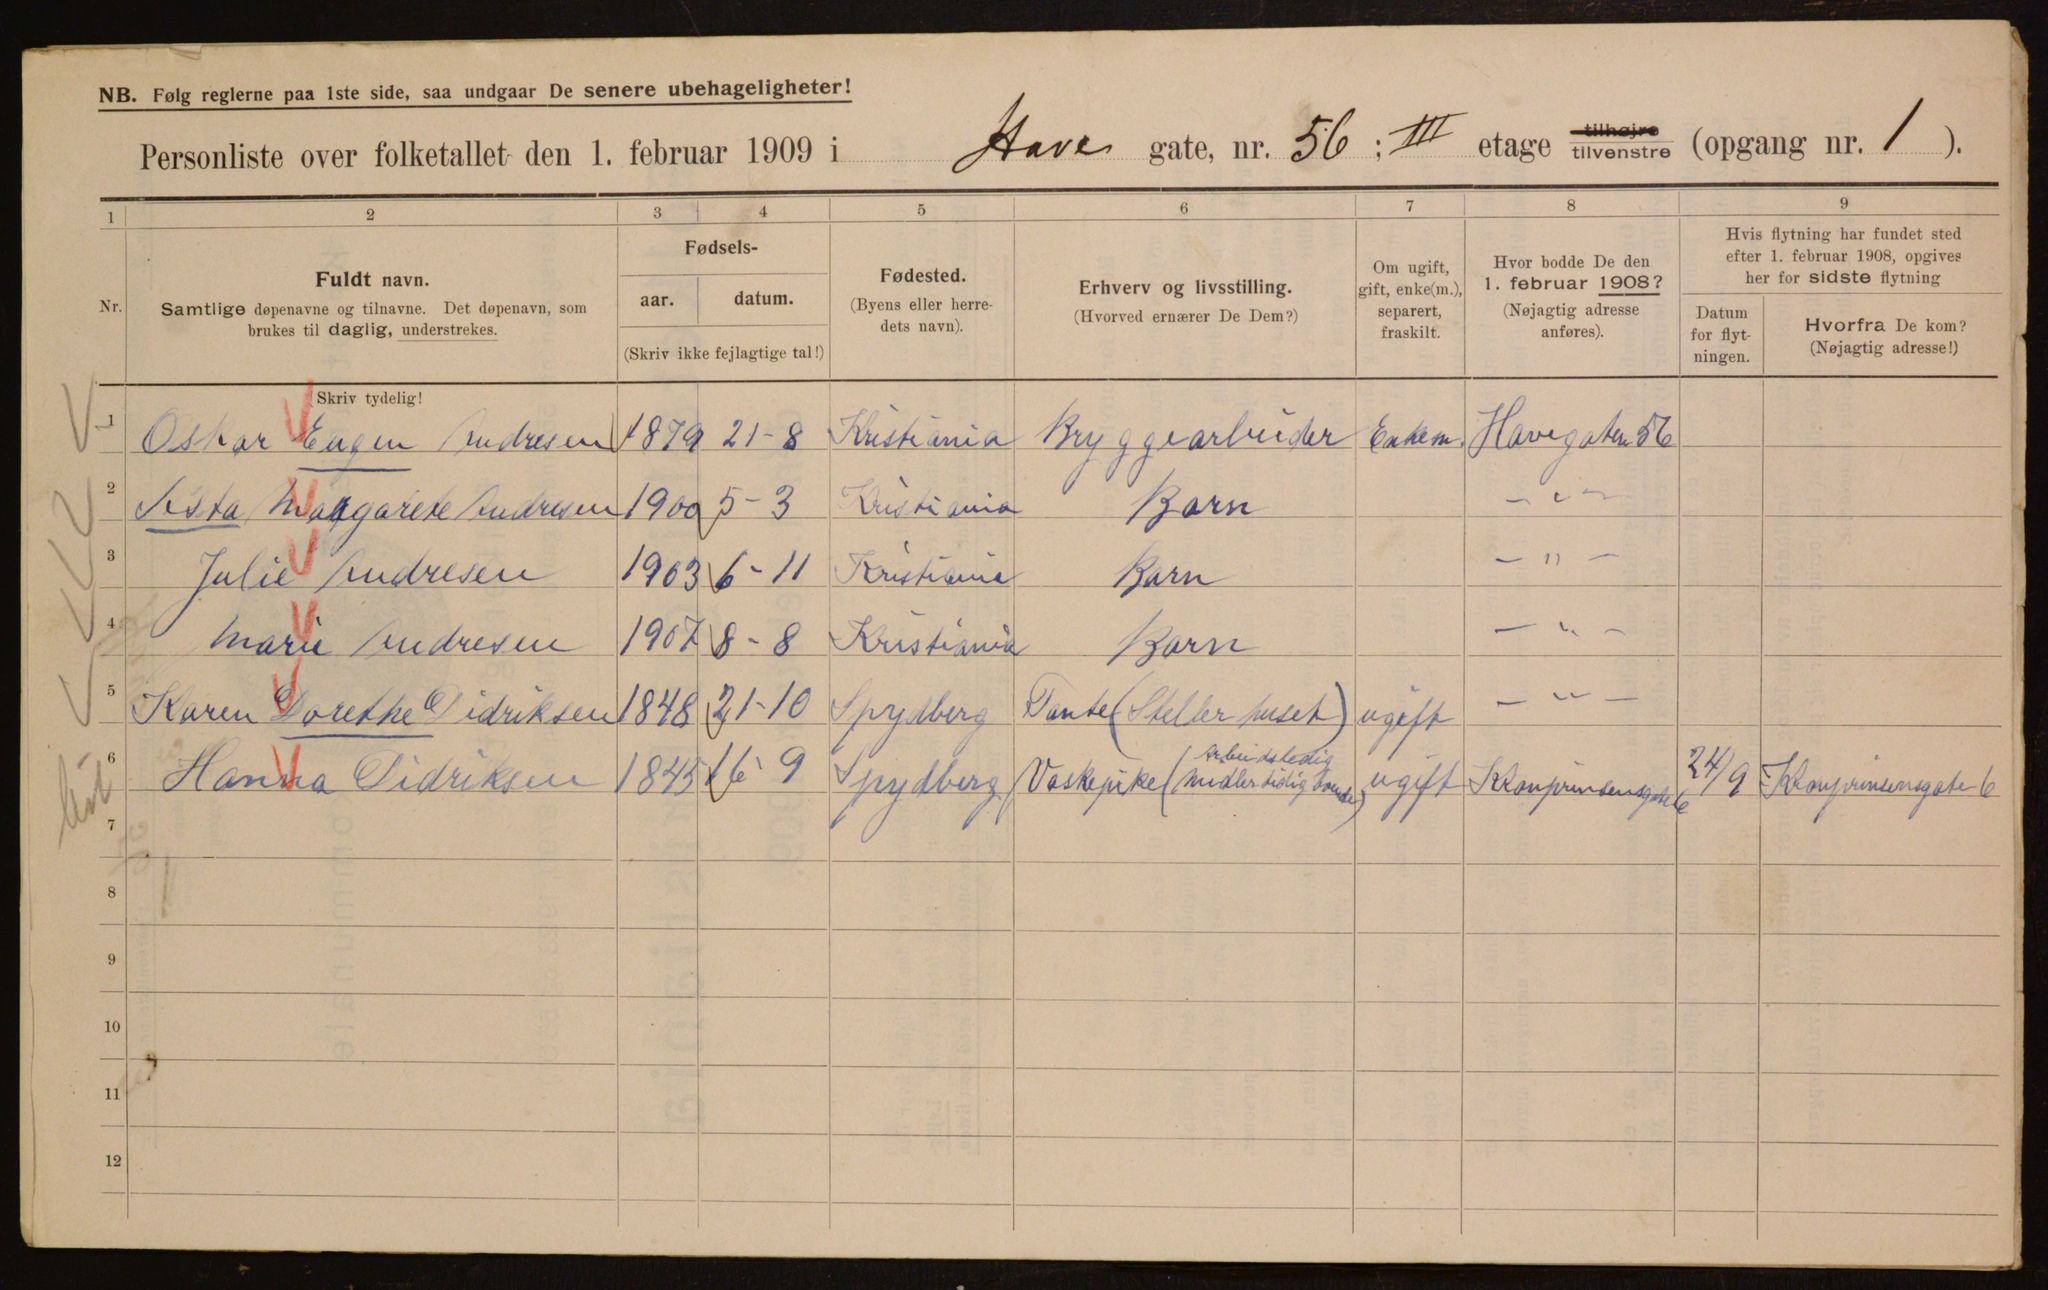 NB. Følg reglerne paa 1ste side, saa undgaar De senere ubehageligheter!
Personliste over folketallet den 1. februar 1909 i Have gate, nr. 56 ; III etage tilhøjre tilvenstre (opgang nr. 1 ).
1 2 3 4 5 6 7 8 9
Nr.
Fuldt navn.
Samtlige døpenavne og tilnavne. Det døpenavn, som
brukes til daglig, understrekes.
Fødsels-
aar. datum.
(Skriv ikke fejlagtige tal!)
Fødested.
(Byens eller herre-
dets navn).
Erhverv og livsstilling.
(Hvorved ernærer De Dem?)
Om ugift,
gift, enke(m.),
separert,
fraskilt.
Hvor bodde De den
1. februar 1908?
(Nøjagtig adresse
anføres).
Hvis flytning har fundet sted
efter 1. februar 1908, opgives
her for sidste flytning
Datum
for flyt-
ningen.
Hvorfra De kom?
(Nøjagtig adresse!)
Skriv tydelig!
1 Oskar Eugen Andresen 1879 21-8 Kristiania Bryggearbeider Enkem. Havegaten 56
2 Asta Margarete Andresen 1900 5-3 Kristiania Barn - " -
3 Julie Andresen 1903 6-11 Kristiania Barn - " -
4 Marie Andresen 1907 8-8 Kristiania Barn - " -
5 Karen Dorethe Didriksen 1848 21-10 Spydberg Tante (Steller huset) ugift - " -
6 Hanna Didriksen 1845 16 9 Spydberg Vaskepike (Arbeidsledig midlertidig boende) ugift Kronprinsensgate 6 24/9 Kronprinsensgate 6
7
8
9
10
11
12